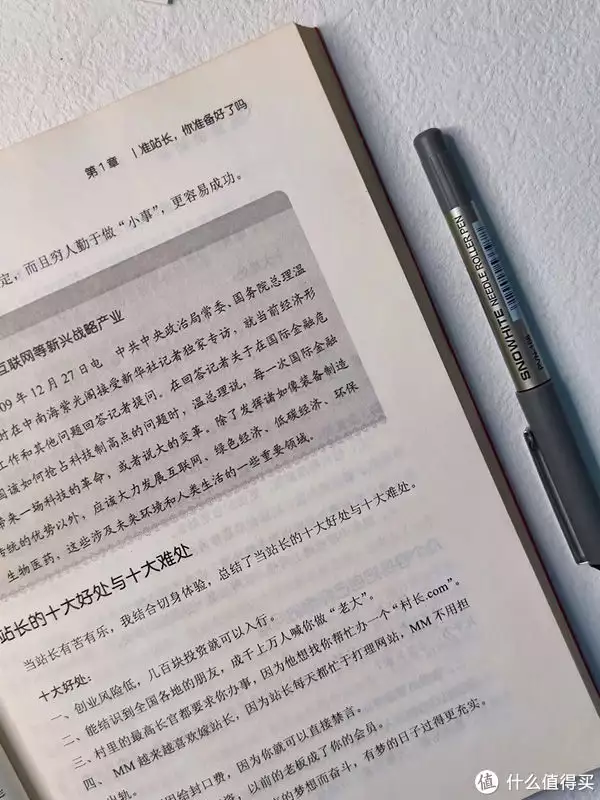 第1章 | 准站长，你准备好了吗
定，而且穷人勤于做“小事”，更容易成功。
互联网等新兴战略产业
09年12月27日电 中共中央政治局常委、国务院总理温
时在中南海紫光阁接受新华社记者独家专访，就当前经济形
工作和其他问题回答记者提问。在回答记者关于在国际金融危
国该如何抢占科技制高点的问题时，温总理说，每一次国际金融
带来一场科技的革命，或者说大的变革。除了发挥诸如像装备制造
传统的优势以外，应该大力发展互联网、绿色经济、低碳经济、环保
生物医药，这些涉及未来环境和人类生活的一些重要领域。
站长的十大好处与十大难处
当站长有苦有乐，我结合切身体验，总结了当站长的十大好处与十大难处。
十大好处：
一、创业风险低，几百块投资就可以入行。
二、能结识到全国各地的朋友，成千上万人喊你做“老大”。
三、村里的最高长官都要求你办事，因为他想找你帮忙办一个“村长.com”。
四、MM越来越喜欢嫁站长，因为站长每天都忙于打理网站，MM不用担
出轨。
因给封口费，因为你就可以直接禁言。
资，以前的老板成了你的会员。
的梦想而奋斗，有梦的日子过得更充实。
SNOWHITE NEEDLE ROLLER PEN
值 什么值得买